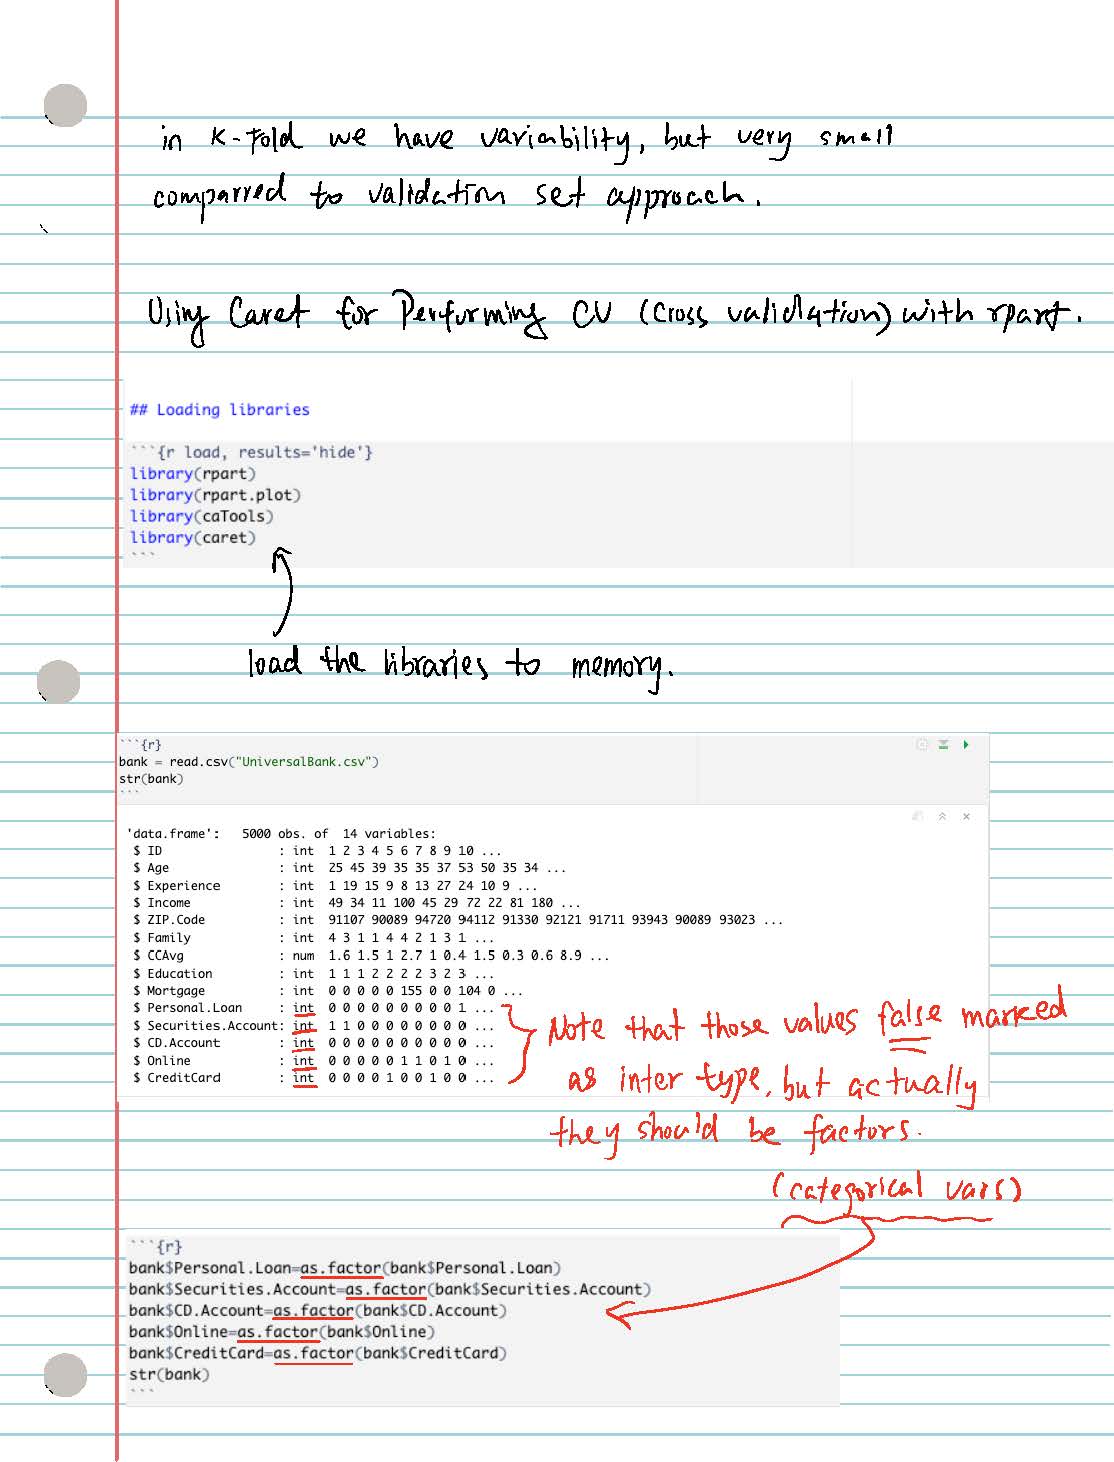 in K-Fold we have variability, but very small
comparred to validation set approach.
Using Caret for Performing CV (Cross validation) with rpart.
## Loading libraries
```{r load, results='hide'}
library(rpart)
library(rpart.plot)
library(caTools)
library(caret)
```
load the libraries to memory.
```{r}
bank = read.csv("UniversalBank.csv")
str(bank)
```
'data.frame':   5000 obs. of  14 variables:
$ ID                : int  1 2 3 4 5 6 7 8 9 10 ...
$ Age               : int  25 45 39 35 35 37 53 50 35 34 ...
$ Experience        : int  1 19 15 9 8 13 27 24 10 9 ...
$ Income            : int  49 34 11 100 45 29 72 22 81 180 ...
$ ZIP.Code          : int  91107 90089 94720 94112 91330 92121 91711 93943 90089 93023 ...
$ Family            : int  4 3 1 1 4 4 2 1 3 1 ...
$ CCAvg             : num  1.6 1.5 1 2.7 1 0.4 1.5 0.3 0.6 8.9 ...
$ Education         : int  1 1 1 2 2 2 2 3 2 3 ...
$ Mortgage          : int  0 0 0 0 0 155 0 0 104 0 ...
$ Personal.Loan     : int  0 0 0 0 0 0 0 0 0 1 ...
$ Securities.Account: int  1 1 0 0 0 0 0 0 0 0 ...
$ CD.Account        : int  0 0 0 0 0 0 0 0 0 0 ...
$ Online            : int  0 0 0 0 0 1 1 0 1 0 ...
$ CreditCard        : int  0 0 0 0 1 0 0 1 0 0 ...
Note that those values false marked
as inter type, but actually
they should be factors.
(categorical vars)
```{r}
bank$Personal.Loan=as.factor(bank$Personal.Loan)
bank$Securities.Account=as.factor(bank$Securities.Account)
bank$CD.Account=as.factor(bank$CD.Account)
bank$Online=as.factor(bank$Online)
bank$CreditCard=as.factor(bank$CreditCard)
str(bank)
```